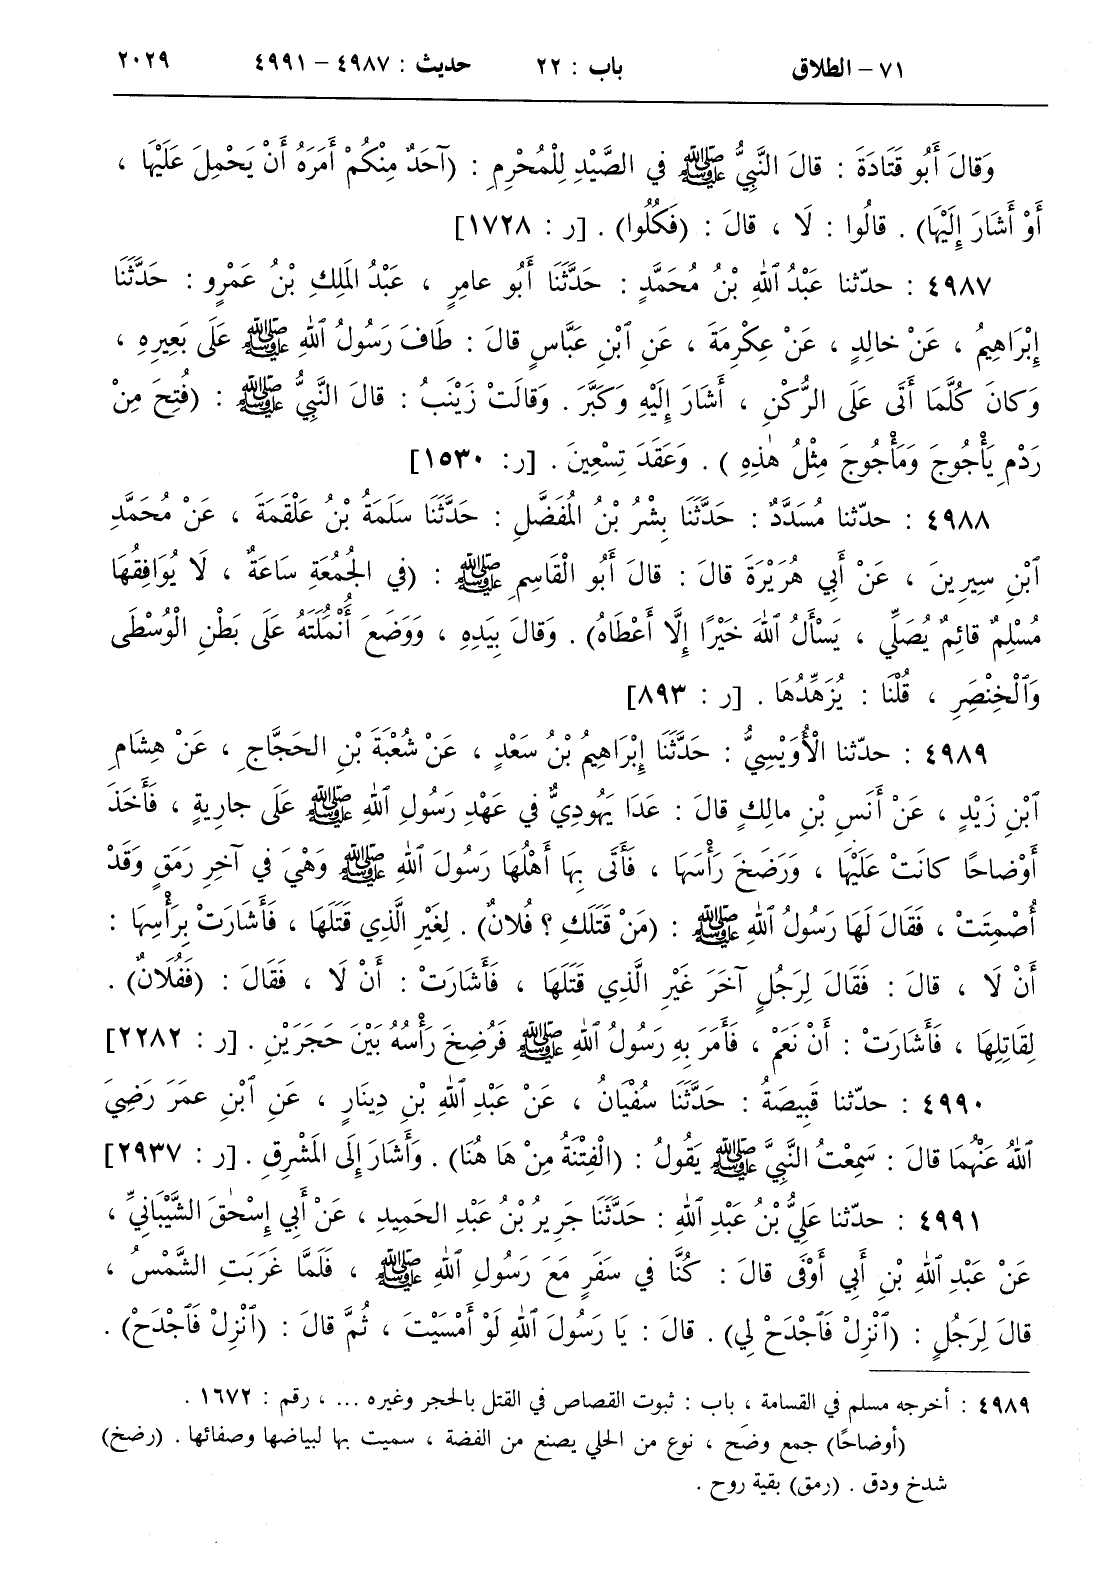 ٧١ – الطلاق باب : ٢٢ حديث : ٤٩٨٧ – ٤٩٩١ ٢٠٢٩
وَقَالَ أَبُو قَتَادَةَ : قالَ النَّبِيُّ ﷺ في الصَّيْدِ لِلْمُحْرِمِ : (آحَدٌ مِنْكُمْ أَمَرَهُ أَنْ يَحْمِلَ عَلَيْهَا ،
أَوْ أَشَارَ إِلَيْهَا) . قالُوا : لَا ، قالَ : (فَكُلُوا) . [ر : ١٧٢٨]
٤٩٨٧ : حدّثنا عَبْدُ ٱللهِ بْنُ مُحَمَّدٍ : حَدَّثَنَا أَبُو عامِرٍ ، عَبْدُ المَلِكِ بْنُ عَمْرٍو : حَدَّثَنَا
إِبْرَاهِيمُ ، عَنْ خالِدٍ ، عَنْ عِكْرِمَةَ ، عَنِ ٱبْنِ عَبَّاسٍ قالَ : طَافَ رَسُولُ ٱللهِ ﷺ عَلَى بَعِيرِهِ ،
وَكانَ كُلَّمَا أَتَى عَلَى الرُّكْنِ ، أَشَارَ إِلَيْهِ وَكَبَّرَ . وَقالَتْ زَيْنَبُ : قالَ النَّبِيُّ ﷺ : (فُتِحَ مِنْ
رَدْمِ يَأْجُوجَ وَمَأْجُوجَ مِثْلُ هٰذِهِ ) . وَعَقَدَ تِسْعِينَ . [ر: ١٥٣٠]
٤٩٨٨ : حدّثنا مُسَدَّدٌ : حَدَّثَنَا بِشْرُ بْنُ المُفَضَّلِ : حَدَّثَنَا سَلَمَةُ بْنُ عَلْقَمَةَ ، عَنْ مُحَمَّدِ
ٱبْنِ سِيرِينَ ، عَنْ أَبِي هُرَيْرَةَ قالَ : قالَ أَبُو الْقَاسِمِ ﷺ : (في الجُمُعَةِ سَاعَةٌ ، لَا يُوَافِقُهَا
مُسْلِمٌ قائِمٌ يُصَلِّي ، يَسْأَلُ ٱللهَ خَيْرًا إِلَّا أَعْطَاهُ) . وَقالَ بِيَدِهِ ، وَوَضَعَ أَنْمُلَتَهُ عَلَى بَطْنِ الْوُسْطَى
وَٱلْخِنْصِرِ ، قُلْنَا : يُزَهِّدُهَا . [ر : ٨٩٣]
٤٩٨٩ : حدّثنا الْأُوَيْسِيُّ : حَدَّثَنَا إِبْرَاهِيمُ بْنُ سَعْدٍ ، عَنْ شُعْبَةَ بْنِ الحَجَّاجِ ، عَنْ هِشَامِ
ٱبْنِ زَيْدٍ ، عَنْ أَنَسِ بْنِ مالِكٍ قالَ : عَدَا يَهُودِيٌّ في عَهْدِ رَسُولِ ٱللهِ ﷺ عَلَى جارِيةٍ ، فَأَخَذَ
أَوْضَاحًا كانَتْ عَلَيْهَا ، وَرَضَخَ رَأْسَهَا ، فَأَتَى بِهَا أَهْلُهَا رَسُولَ ٱللهِ ﷺ وَهْيَ في آخِرِ رَمَقٍ وَقَدْ
أُصْمِتَتْ ، فَقَالَ لَهَا رَسُولُ ٱللهِ ﷺ : (مَنْ قَتَلَكِ ؟ فُلَانٌ) . لِغَيْرِ الَّذِي قَتَلَهَا ، فَأَشَارَتْ بِرَأْسِهَا :
أَنْ لَا ، قالَ : فَقَالَ لِرَجُلٍ آخَرَ غَيْرِ الَّذِي قَتَلَهَا ، فَأَشَارَتْ : أَنْ لَا ، فَقَالَ : (فَفُلَانٌ) .
لِقَاتِلِهَا ، فَأَشَارَتْ : أَنْ نَعَمْ ، فَأَمَرَ بِهِ رَسُولُ ٱللهِ ﷺ فَرُضِخَ رَأْسُهُ بَيْنَ حَجَرَيْنِ . [ر : ٢٢٨٢]
٤٩٩٠ : حدّثنا قَبِيصَةُ : حَدَّثَنَا سُفْيَانُ ، عَنْ عَبْدِ ٱللهِ بْنِ دِينَارٍ ، عَنِ ٱبْنِ عمَرَ رَضِيَ
ٱللهُ عَنْهُمَا قالَ : سَمِعْتُ النَّبِيَّ ﷺ يَقُولُ : (الْفِتْنَةُ مِنْ هَا هُنَا) . وَأَشَارَ إِلَى المَشْرِقِ . [ر : ٢٩٣٧]
٤٩٩١ : حدّثنا عَلِيُّ بْنُ عَبْدِ ٱللهِ : حَدَّثَنَا جَرِيرُ بْنُ عَبْدِ الحَمِيدِ ، عَنْ أَبِي إِسْحٰقَ الشَّيْبَانِيِّ ،
عَنْ عَبْدِ ٱللهِ بْنِ أَبِي أَوْفَى قالَ : كُنَّا في سَفَرٍ مَعَ رَسُولِ ٱللهِ ﷺ ، فَلَمَّا غَرَبَتِ الشَّمْسُ ،
قالَ لِرَجُلٍ : (ٱنْزِلْ فَٱجْدَحْ لِي) . قالَ : يَا رَسُولَ ٱللهِ لَوْ أَمْسَيْتَ ، ثُمَّ قالَ : (ٱنْزِلْ فَٱجْدَحْ) .
٤٩٨٩ : أخرجه مسلم في القسامة ، باب : ثبوت القصاص في القتل بالحجر وغيره ... ، رقم : ١٦٧٢ .
(أوضاحًا) جمع وضَح ، نوع من الحلي يصنع من الفضة ، سميت بها لبياضها وصفائها . (رضخ)
شدخ ودق . (رمق) بقية روح .